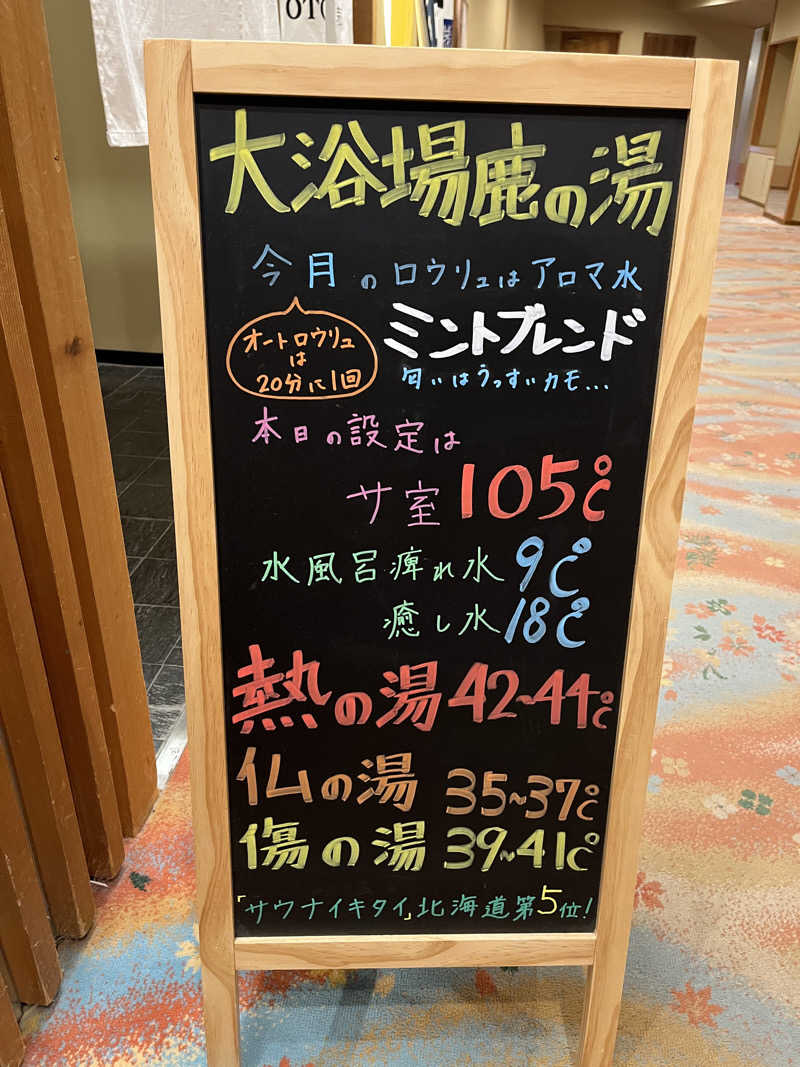 OTO
大浴場鹿の湯
今月のロウリュはアロマ水
オートロウリュ
は
20分に1回
ミントブレンド
匂いはうっすいカモ...
本日の設定は
サ室 105℃
水風呂痺れ水 9℃
癒し水 18℃
熱の湯 42~44℃
仏の湯 35~37℃
傷の湯 39~41℃
「サウナイキタイ」北海道第5位!